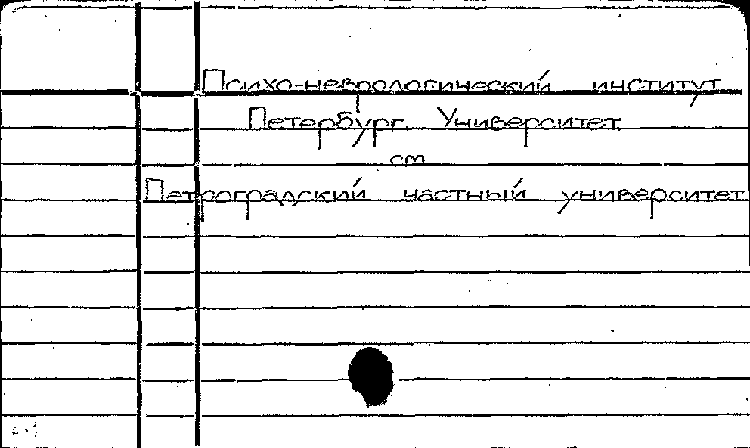 Психо-неврологический институт
Петербург. Университет.
см
Петроградский частный университет